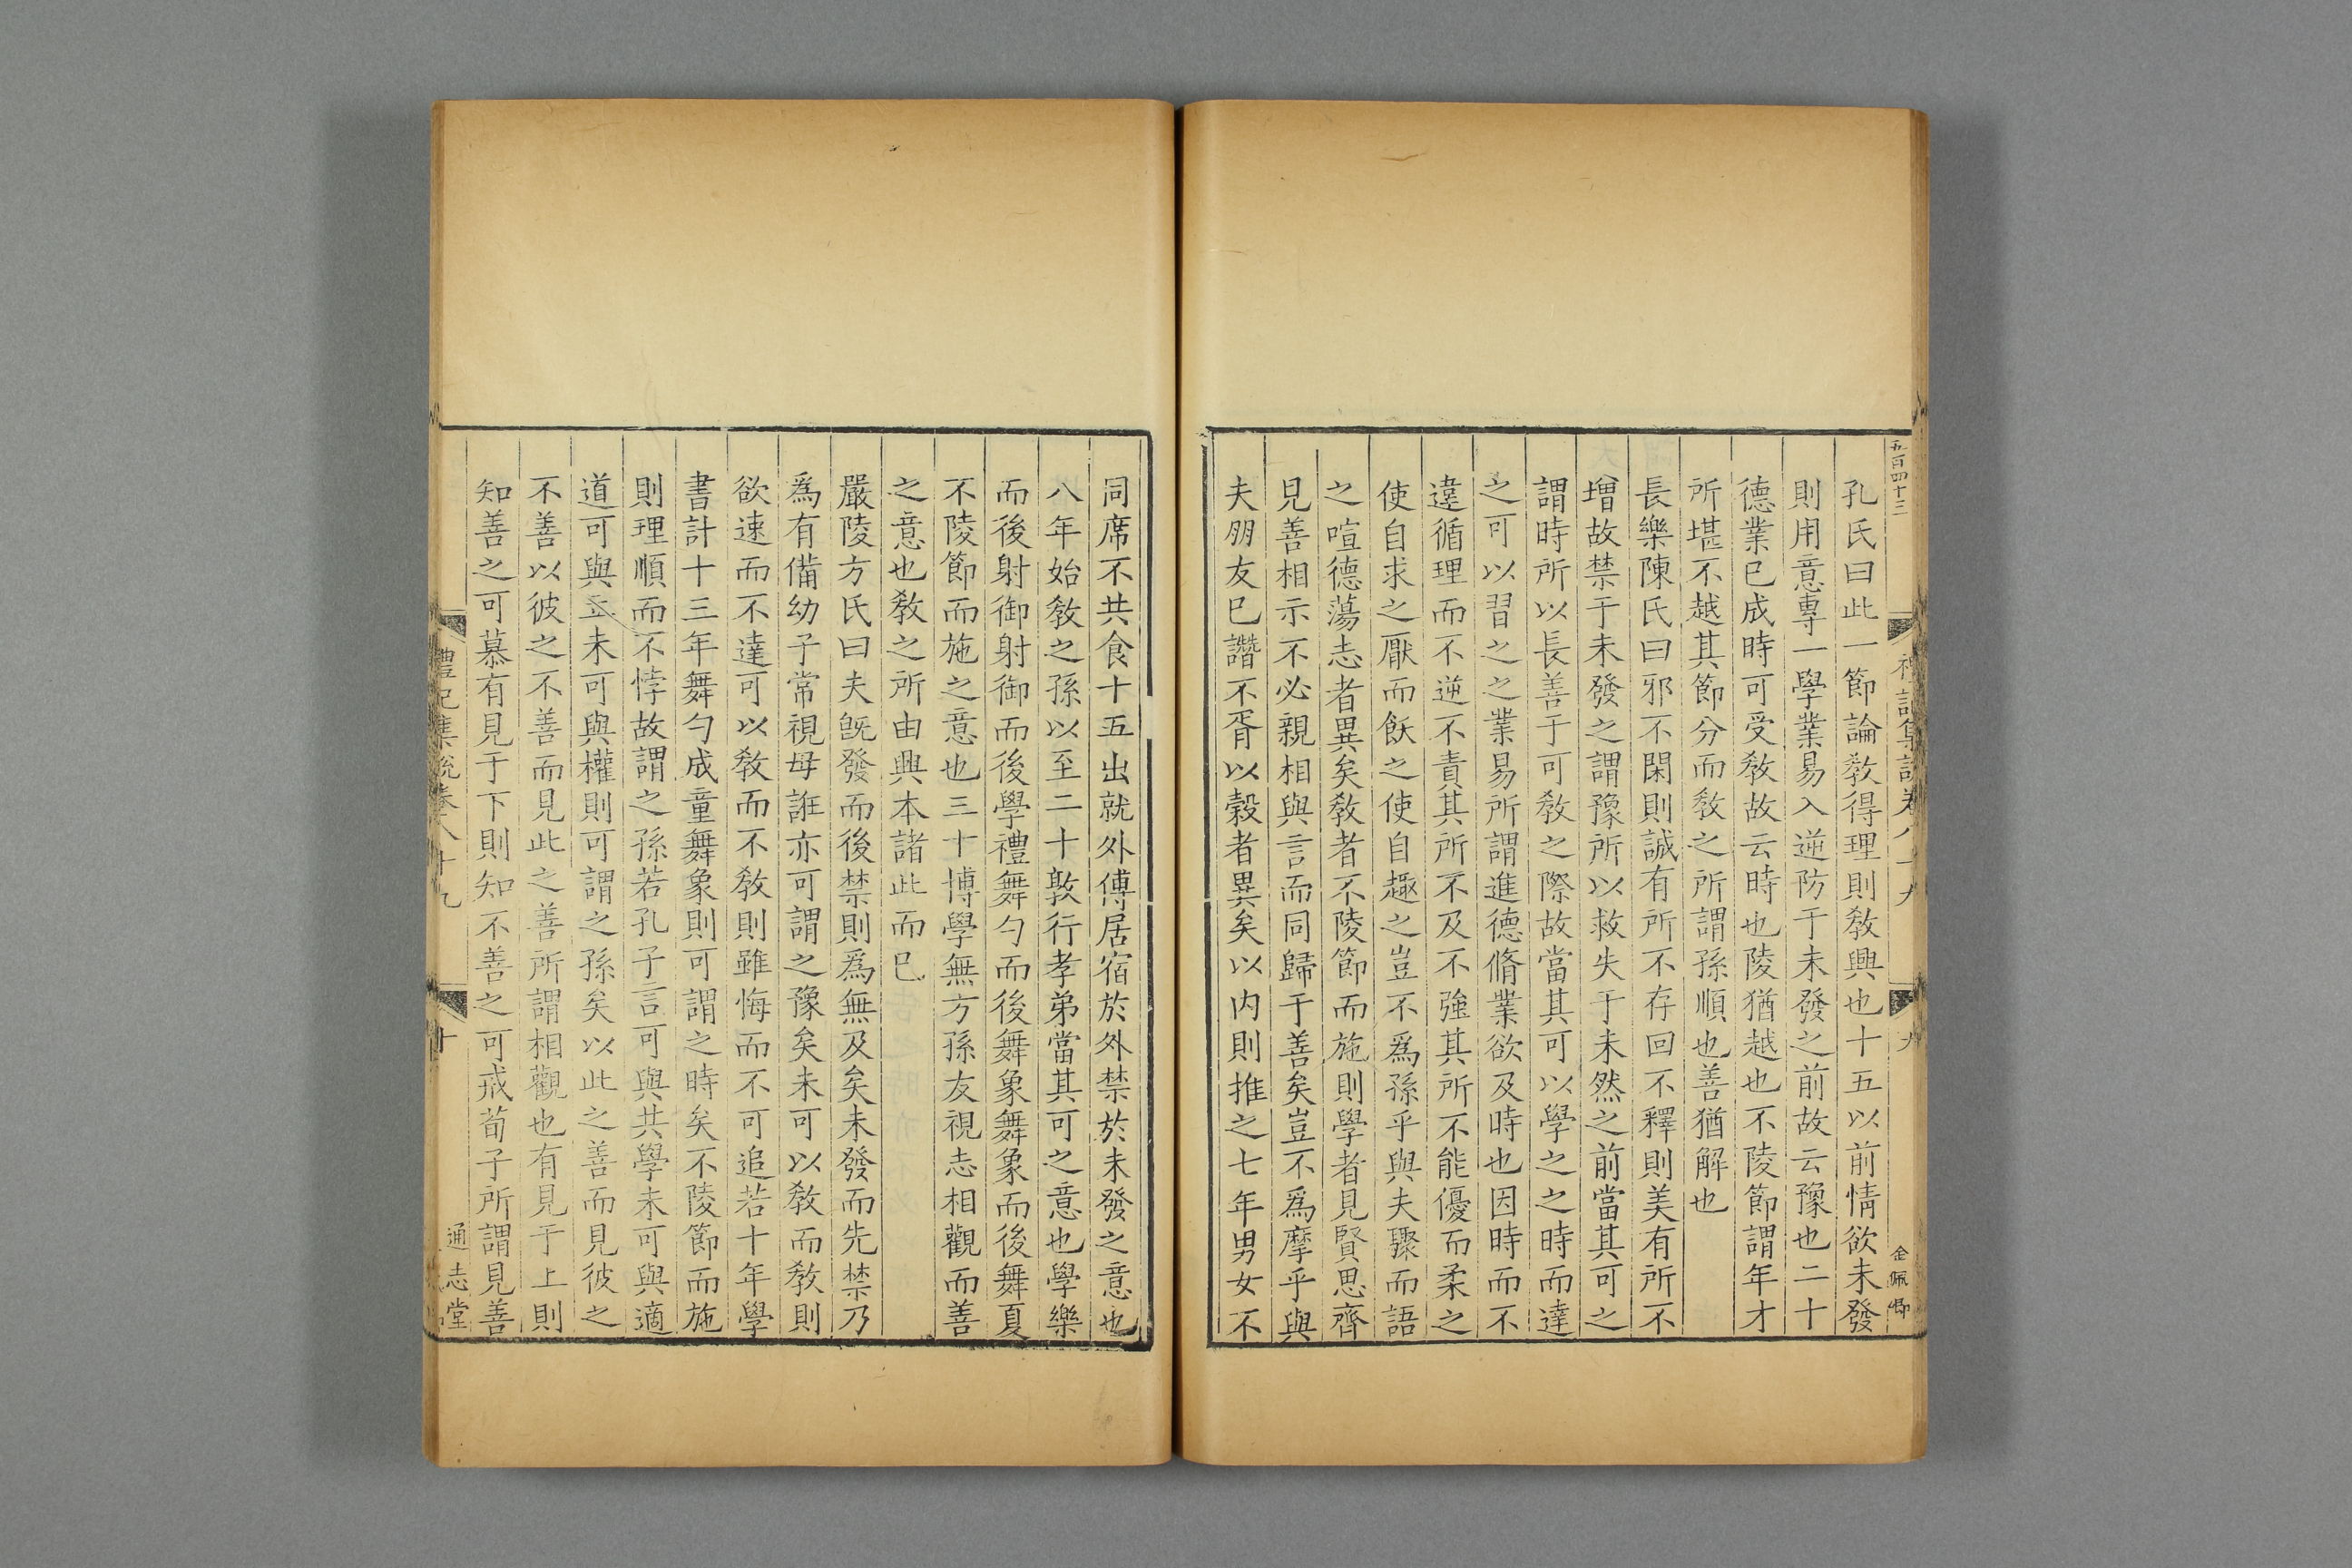 五百四十三
禮記集說卷八十九
九
金佩卿
孔氏曰此一節論敎得理則敎興也十五以前情欲未發
則用意專一學業易入逆防于未發之前故云豫也二十
德業已成時可受敎故云時也陵猶越也不陵節謂年才
所堪不越其節分而敎之所謂孫順也善猶解也
長樂陳氏曰邪不閑則誠有所不存回不釋則美有所不
增故禁于未發之謂豫所以救失于未然之前當其可之
謂時所以長善于可敎之際故當其可以學之之時而達
之可以習之之業易所謂進德脩業欲及時也因時而不
違循理而不逆不責其所不及不強其所不能優而柔之
使自求之厭而飫之使自趣之豈不爲孫乎與夫驟而語
之喧德蕩志者異矣敎者不陵節而施則學者見賢思齊
見善相示不必親相與言而同歸于善矣豈不爲摩乎與
夫朋友已譖不胥以穀者異矣以内則推之七年男女不
同席不共食十五出就外傅居宿於外禁於未發之意也
八年始敎之孫以至二十敦行孝弟當其可之意也學樂
而後射御射御而後學禮舞勺而後舞象舞象而後舞夏
不陵節而施之意也三十博學無方孫友視志相觀而善
之意也敎之所由興本諸此而已
嚴陵方氏曰夫旣發而後禁則爲無及矣未發而先禁乃
爲有備幼子常視母誑亦可謂之豫矣未可以敎而敎則
欲速而不達可以敎而不敎則雖悔而不可追若十年學
書計十三年舞勺成童舞象則可謂之時矣不陵節而施
則理順而不悖故謂之孫若孔子言可與共學未可與適
道可與立未可與權則可謂之孫矣以此之善而見彼之
不善以彼之不善而見此之善所謂相觀也有見于上則
知善之可慕有見于下則知不善之可戒荀子所謂見善
禮記集說卷八十九
十
通志堂